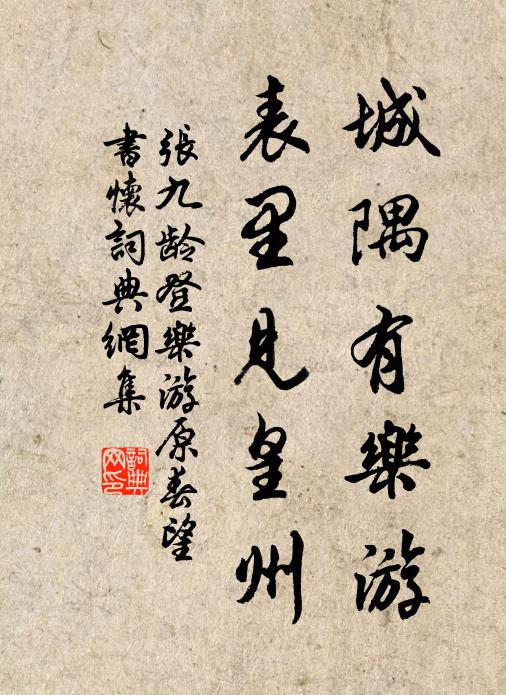 城隅有樂游
表里見皇州
張九龄登樂游原春望
書懷詞典網集
詞典網印